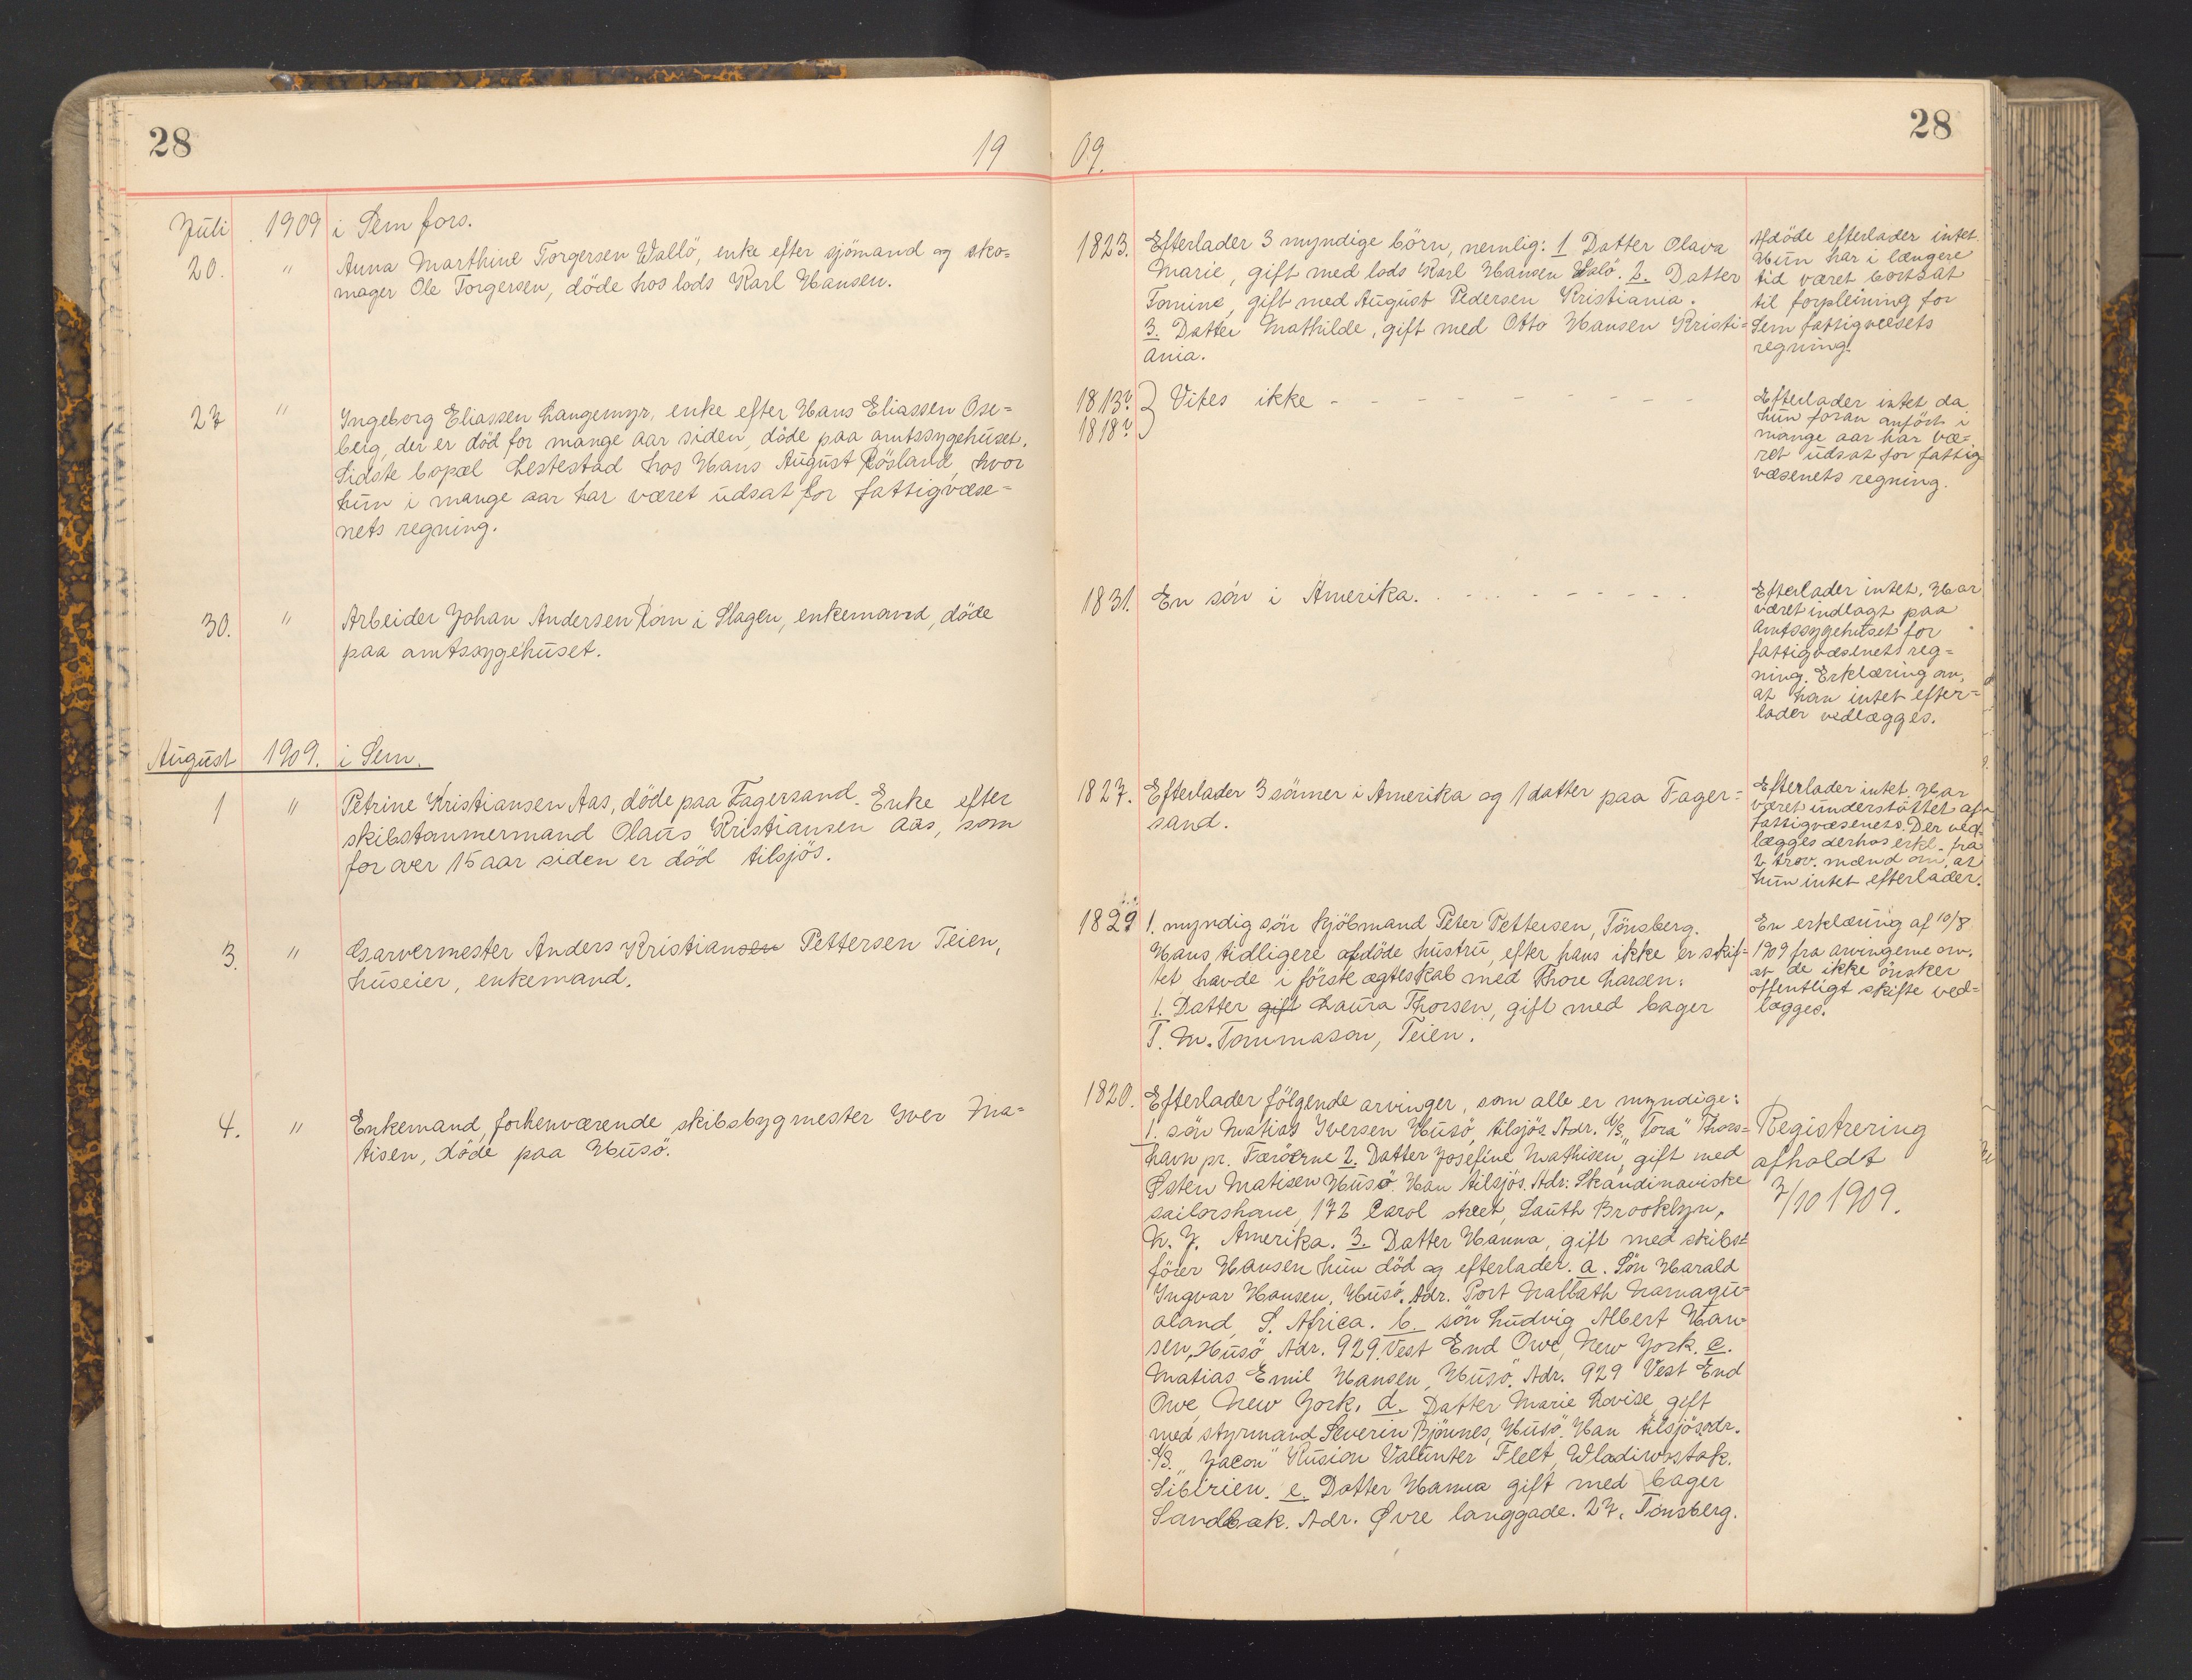 28
19
09.
28
Juli 1909 i Sem fors.
20. " Anna Marthine Torgersen Wallö, enke efter sjömand og sko=
mager Ole Torgersen, döde hos lods Karl Hansen.
1823. Efterlader 3 myndige börn, nemlig: 1 Datter Olava
Marie, gift med lods Karl Hansen Valö. 2. Datter
Tomine, gift med August Pedersen Kristiania.
3. Datter Mathilde, gift med Otto Hansen Kristi=
ania.
Afdöde efterlader intet.
Hun har i længere
tid været bortsat
til forpleining for
Sem fattigvæsets
regning.
27 " Ingeborg Eliassen Langemyr, enke efter Hans Eliassen Ose=
berg, der er död for mange aar siden, döde paa amtssygehuset.
Sidste bopæl Lestestad hos Hans August Rösland, hvor
hun i mange aar har været udsat for fattigvæse=
nets regning.
1813?
1818? } Vites ikke - - - - - - - - - -
Efterlader intet da
hun foran anfört i
mange aar har væ=
ret udsat for fattig
væsenets regning.
30. " Arbeider Johan Andersen Rom i Slagen, enkemand, döde
paa amtssygehuset.
1831. En sön i Amerika. - - - - - - - -
Efterlader intet. Har
været indlagt paa
Amtssygehuset for
fattigvæsenets reg=
ning. Erklæring om,
at han intet efter=
lader vedlægges.
August 1909. i Sem.
1 " Petrine Kristiansen Aas, döde paa Fagersand. Enke efter
skibstømmermand Olaus Kristiansen Aas, som
for over 15 aar siden er död tilsjös.
1827. Efterlader 3 sönner i Amerika og 1 datter paa Fager=
sand.
Efterlader intet. Har
været understöttet af
fattigvæsenets. Der ved-
lægges derhos erkl. fra
2 trov. mænd om, at
hun intet efterlader.
3. " Garvermester Anders Kristiansen Pettersen Teien,
huseier, enkemand.
1829 1. myndig sön kjöbmand Peter Pettersen, Tönsberg.
Hans tidligere afdöde hustru, efter hans ikke er skif=
tet havde i förste ægteskab med Thore Larsen:
1. Datter gift Laura Thorsen, gift med bager
T. M. Tommason, Teien.
En erklæring af 10/8
1909 fra arvingerne om,
at de ikke önsker
offentligt skifte ved=
lægges.
4. " Enkemand, forhenværende skibsbygmester Iver Ma=
tisen, döde paa Husö.
1820. Efterlader fölgende arvinger, som alle er myndige:
1. sön Matias Iversen Husö, tilsjös Adr. D/S. "Tora" Thors=
havn pr. Færöerne 2. Datter Josefine Mathisen, gift med
Østen Matisen Husö. Han tilsjös. Adr: Skandinaviske
sailorshome, 172 Carol street, South Brooklyn,
N. Y. Amerika. 3. Datter Hanna, gift med skibs=
förer Hansen hun död og efterlader. a. Sön Harald
Ingvar Hansen, Husö. Adr. Port Nallath Namaqu=
aland, S. Africa. b. sön Ludvig Albert Han=
sen, Husö, Adr. 929. Vest End Owe, New York. c.
Matias Emil Hansen, Husö. Adr. 929 Vest End
Owe, New York. d. Datter Marie Lovise, gift
med styrmand Severin Björnnes, Husö. Han tilsjös adr.
D/S. "Jacon" Rusion Valunter Fleet, Wladiwostok.
Sibirien. e. Datter Hanna gift med bager
Sandbæk. Adr. Øvre langgade. 27. Tönsberg.
Registrering
afholdt
7/10 1909.